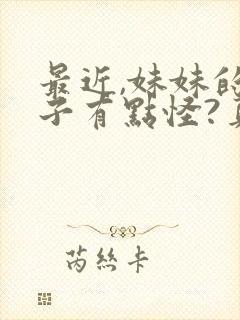 最近,妹妹的
子有點怪?
芮絲卡